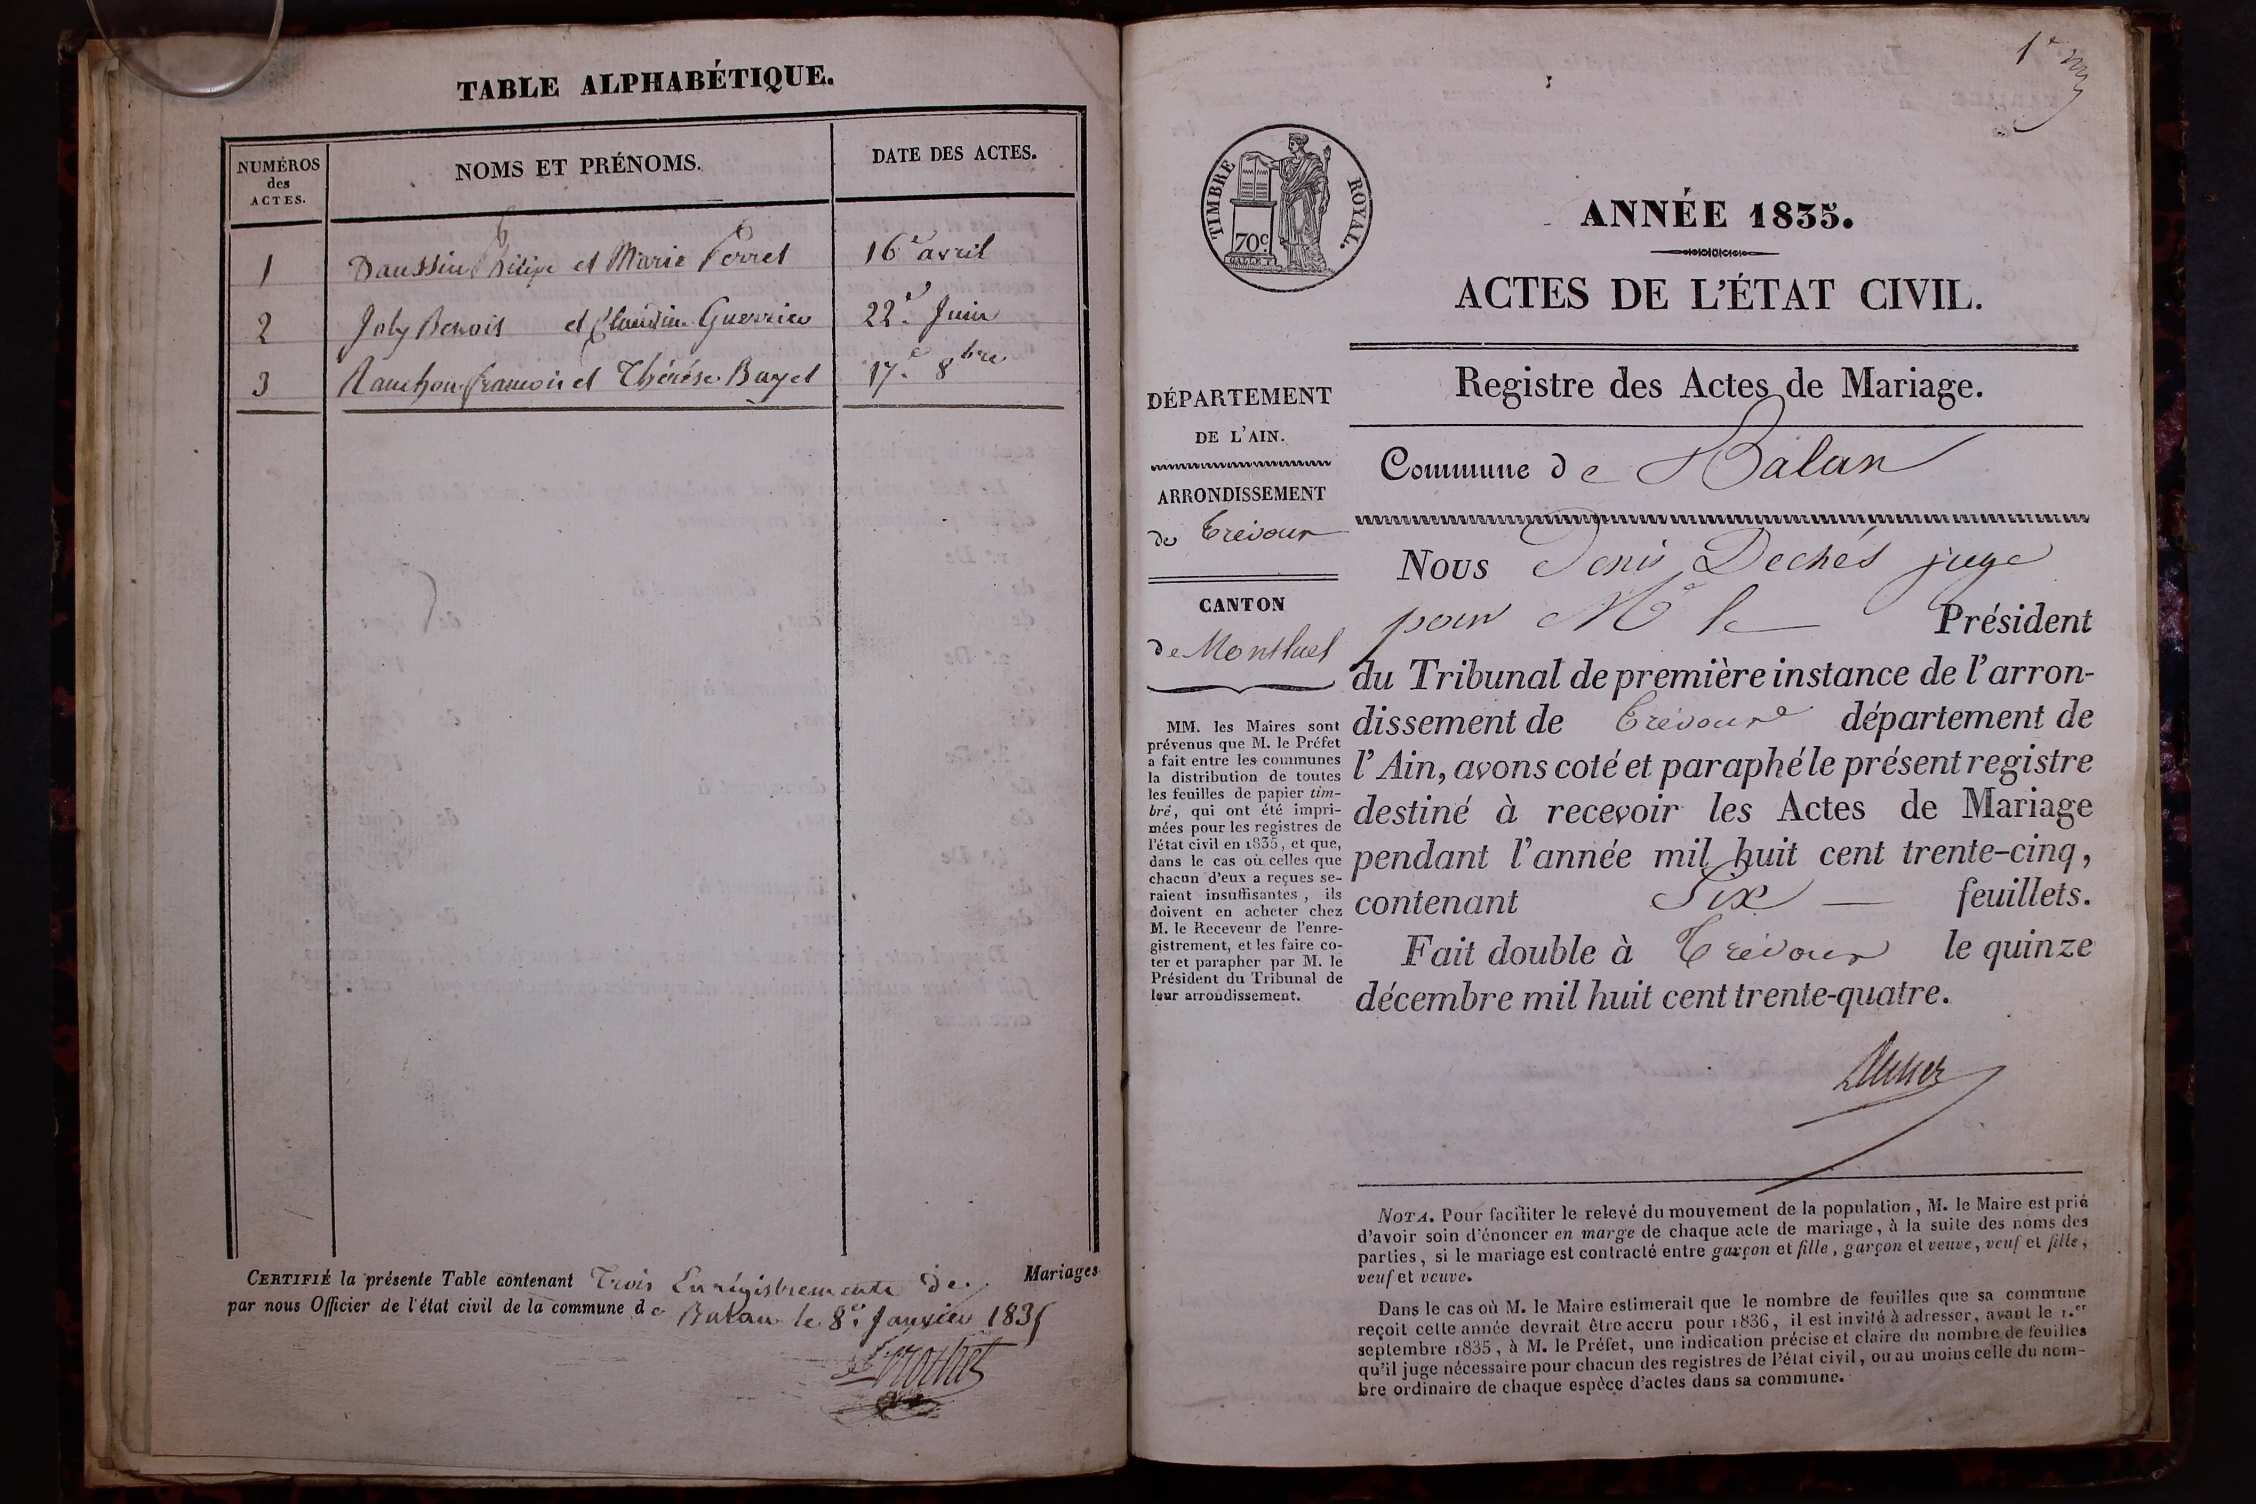 TABLE ALPHABÉTIQUE.
NUMÉROS des ACTES.
NOMS ET PRÉNOMS.
DATE DES ACTES.
1 et Marie Perret 16.e avril
2 Joly Benois et Claudine Guerrier 22.e Juin
3 Ranchon francois et Thérése Bayet 17.e 8bre
CERTIFIÉ la présente Table contenant Trois Enrégistrements de. Mariages
par nous Officier de l'état civil de la commune de Balan le 8.e Janvier 1835
1er
TIMBRE ROYAL.
70c
ANNÉE 1835.
ACTES DE L'ÉTAT CIVIL.
Registre des Actes de Mariage.
DÉPARTEMENT
DE L'AIN.
ARRONDISSEMENT
de Trévoux
CANTON
de Montluel
MM. les Maires sont
prévenus que M. le Préfet
a fait entre les communes
la distribution de toutes
les feuilles de papier tim-
bré, qui ont été impri-
mées pour les registres de
l'état civil en 1835, et que,
dans le cas où celles que
chacun d'eux a reçues se-
raient insuffisantes, ils
doivent en acheter chez
M. le Receveur de l'enre-
gistrement, et les faire co-
ter et parapher par M. le
Président du Tribunal de
leur arrondissement.
Commune de Balan
Nous Denis Dechés juge
pour Mr le Président
du Tribunal de première instance de l'arron-
dissement de Trévoux département de
l'Ain, avons coté et paraphé le présent registre
destiné à recevoir les Actes de Mariage
pendant l'année mil huit cent trente-cinq,
contenant Six feuillets.
Fait double à Trévoux le quinze
décembre mil huit cent trente-quatre.
NOTA. Pour faciliter le relevé du mouvement de la population, M. le Maire est prié
d'avoir soin d'énoncer en marge de chaque acte de mariage, à la suite des noms des
parties, si le mariage est contracté entre garçon et fille, garçon et veuve, veuf et fille,
veuf et veuve.
Dans le cas où M. le Maire estimerait que le nombre de feuilles que sa commune
reçoit cette année devrait être accru pour 1836, il est invité à adresser, avant le 1.er
septembre 1835, à M. le Préfet, une indication précise et claire du nombre de feuilles
qu'il juge nécessaire pour chacun des registres de l'état civil, ou au moins celle du nom-
bre ordinaire de chaque espèce d'actes dans sa commune.